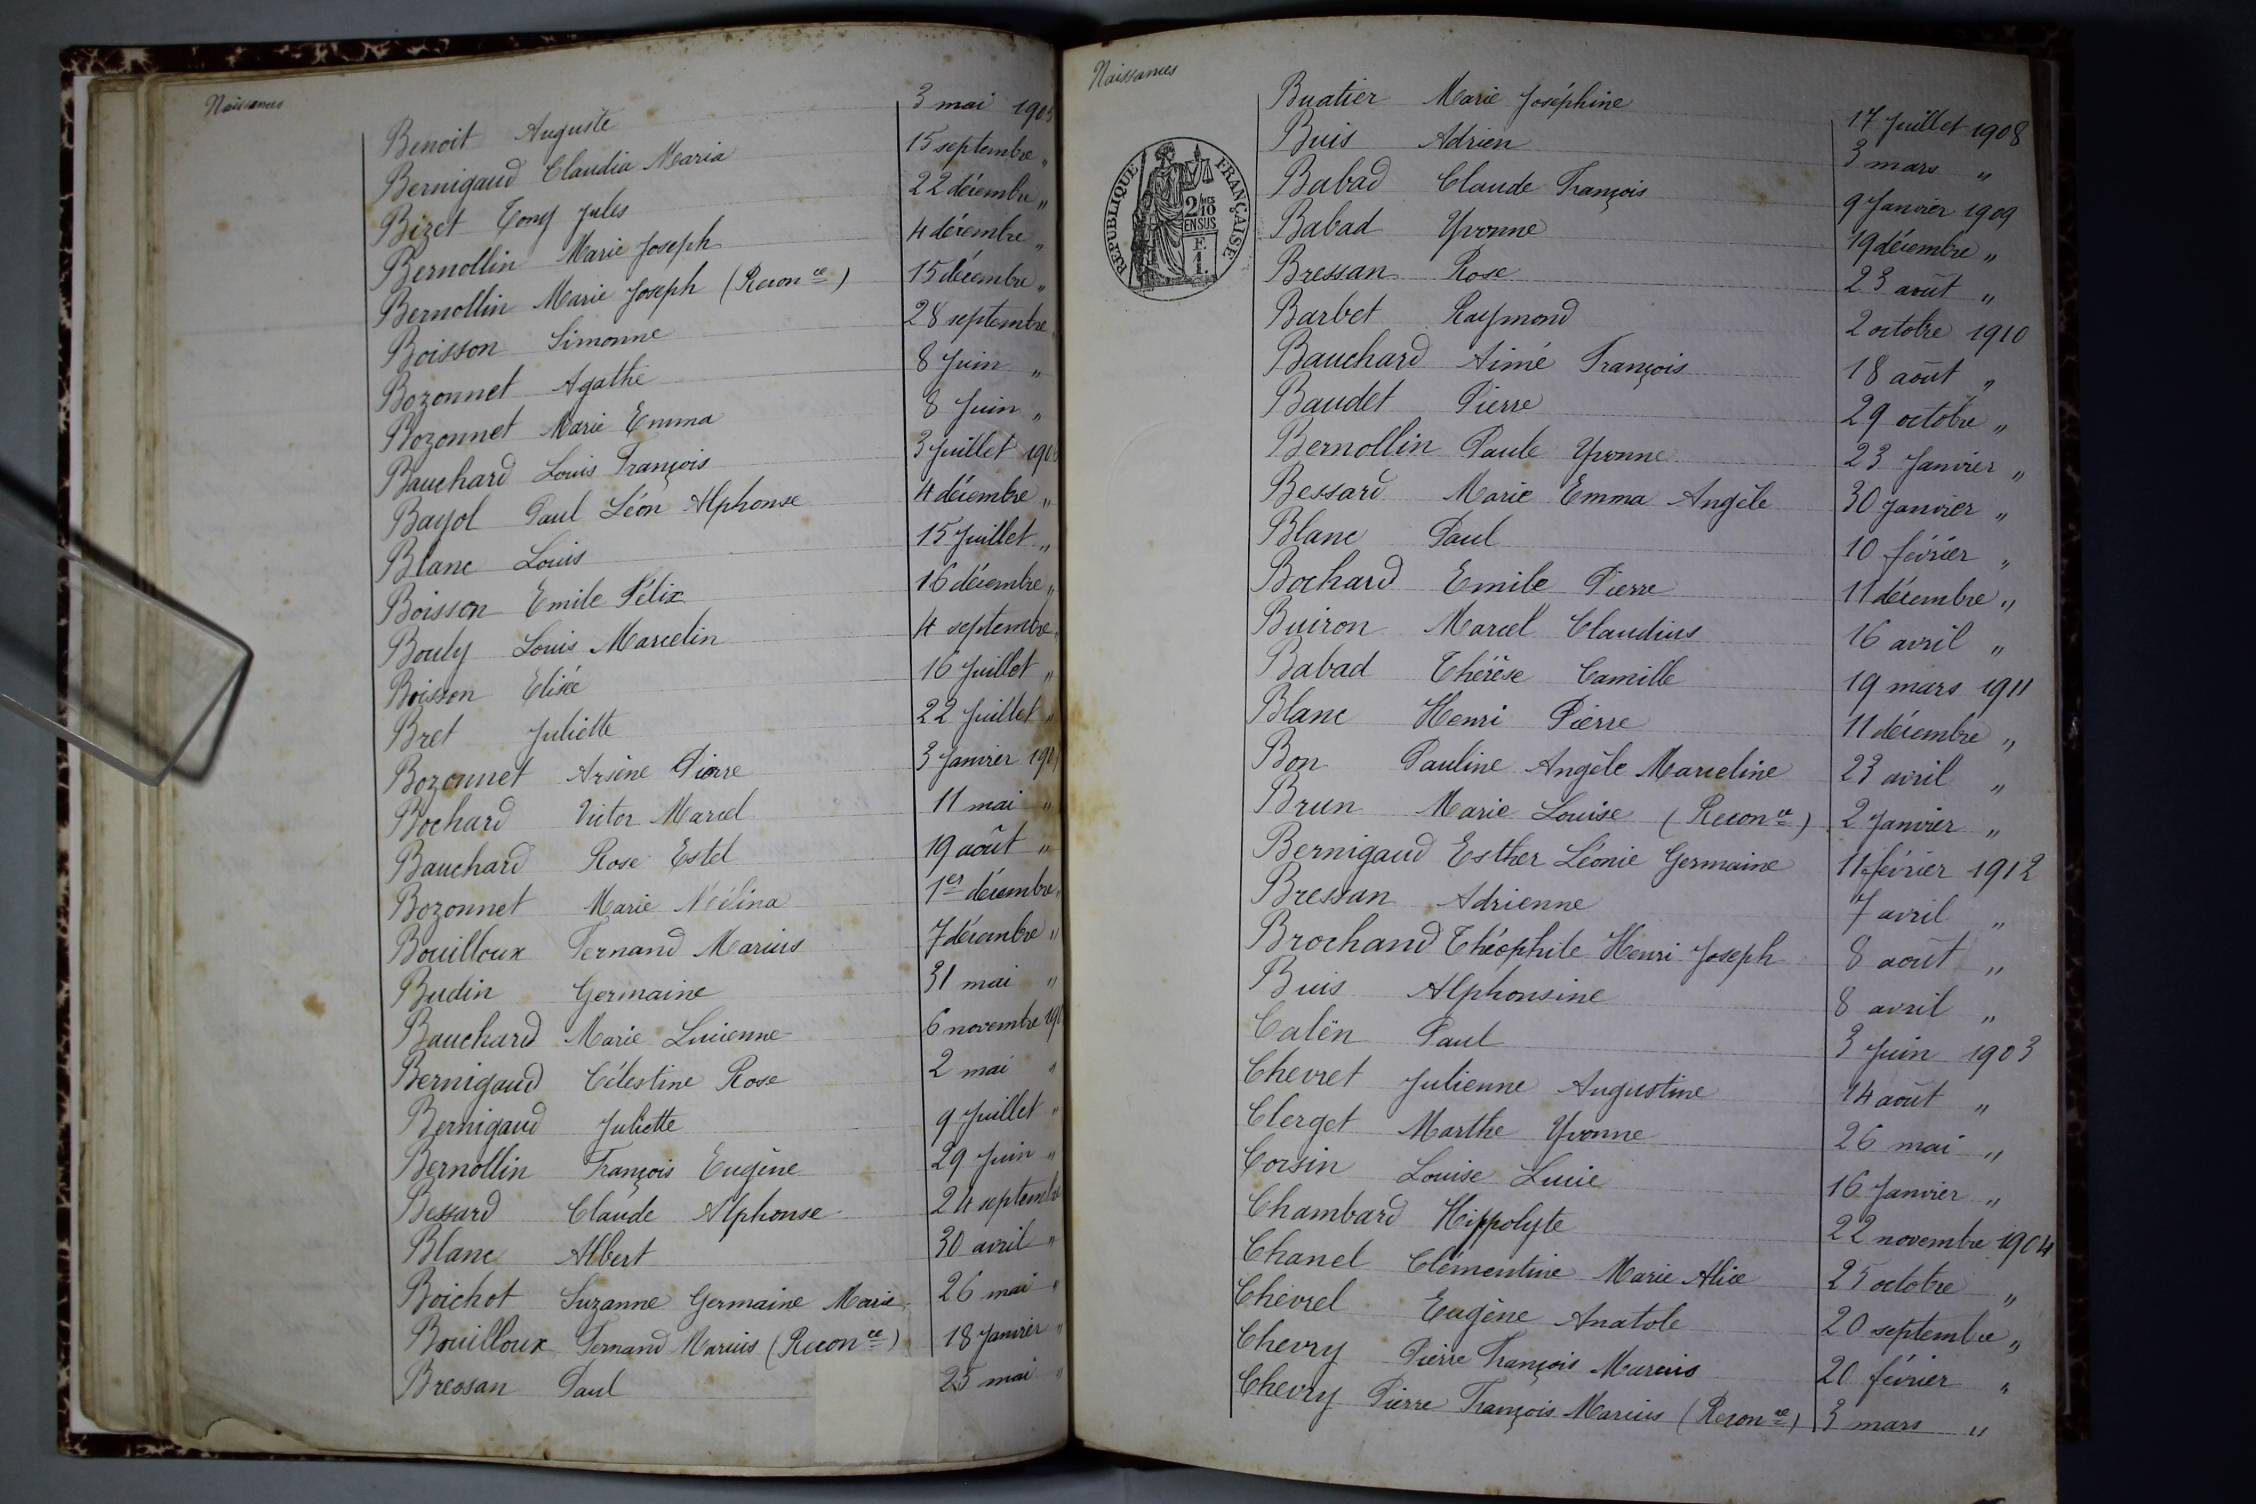 Naissances
Benoit Auguste 3 mai 1905
Bernigaud Claudia Maria 15 septembre "
Bizet Tony Jules 22 décembre "
Bernollin Marie Joseph 4 décembre "
Bernollin Marie Joseph (Reconce) 15 décembre "
Boisson Simonne 28 septembre "
Bozonnet Agathe 8 Juin "
Bozonnet Marie Emma 8 Juin "
Bauchard Louis François 3 Juillet
Bayol Paul Léon Alphonse 4 décembre "
Blanc Louis 15 Juillet "
Boisson Emile Félix 16 décembre "
Bouly Louis Marcelin 4 septembre "
Boisson Elisée 16 Juillet "
Bret Juliette 22 Juillet "
Bozonnet Arsène Pierre 3 Janvier
Bochard Victor Marcel 11 mai "
Bauchard Rose Estel 19 août "
Bozonnet Marie Nélina 1er décembre "
Bouilloux Fernand Marius 7 décembre "
Budin Germaine 31 mai "
Bauchard Marie Lucienne 6 novembre
Bernigaud Célestine Rose 2 mai "
Bernigaud Juliette 9 Juillet "
Bernollin François Eugène 29 Juin "
Bessard Claude Alphonse 24 septembre
Blanc Albert 30 avril "
Boichot Suzanne Germaine Marie 26 mai "
Bouilloux Fernand Marius (Reconce) 18 Janvier "
Bressan Paul 25 mai "
Naissances
RÉPUBLIQUE FRANÇAISE
2/10
EN SUS
F.
1.
Buatier Marie Joséphine 17 Juillet 1908
Buis Adrien 3 mars "
Babad Claude François 9 Janvier 1909
Babad Yvonne 19 décembre "
Bressan Rose 23 août "
Barbet Raymond 2 octobre 1910
Bauchard Aimé François 18 août "
Baudet Pierre 29 octobre "
Bernollin Paule Yvonne 23 Janvier "
Bessard Marie Emma Angèle 30 Janvier "
Blanc Paul 10 février "
Bochard Emile Pierre 11 décembre "
Buiron Marcel Claudius 16 avril "
Babad Thérèse Camille 19 mars 1911
Blanc Henri Pierre 11 décembre "
Bon Pauline Angèle Marceline 23 avril "
Brun Marie Louise (Reconce) 2 Janvier "
Bernigaud Esther Léonie Germaine 11 février 1912
Bressan Adrienne 7 avril "
Brochand Théophile Henri Joseph 8 août "
Buis Alphonsine 8 avril "
Calën Paul 3 Juin 1903
Chevret Julienne Augustine 14 août "
Clerget Marthe Yvonne 26 mai "
Corsin Louise Lucie 16 Janvier "
Chambard Hippolyte 22 novembre 1904
Chanel Clémentine Marie Alice 25 octobre "
Chevrel Eugène Anatole 20 septembre "
Chevry Pierre François Marius 20 février "
Chevry Pierre François Marius (Reconce) 3 mars "